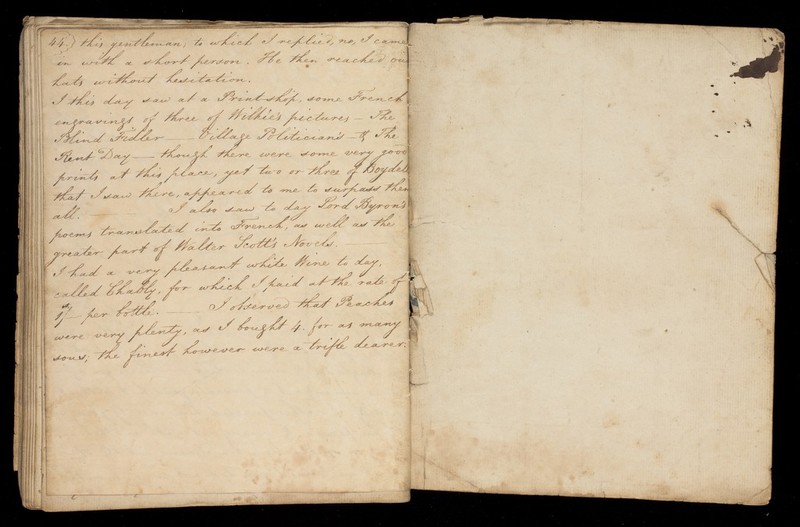 44.) this gentleman; to which I replied, no, I came
in with a short person. He then reached our
hats without hesitation.
I this day saw at a Print-shop, some French
engravings of three of Wilkie's pictures – The
Blind Fidler — Village Politicians – & The
Rent Day — though there were some very good
prints at this place, yet two or three of Boydell
that I saw there, appeared to me to surpass them
all. I also saw to day Lord Byron's
poems translated into French, as well as the
greater part of Walter Scott's Novels.
I had a very pleasant white Wine to day,
called Chably, for which I paid at the rate of
per bottle. — I observed that Peaches
were very plenty, as I bought 4. for as many
sous; the finest however were a trifle dearer.